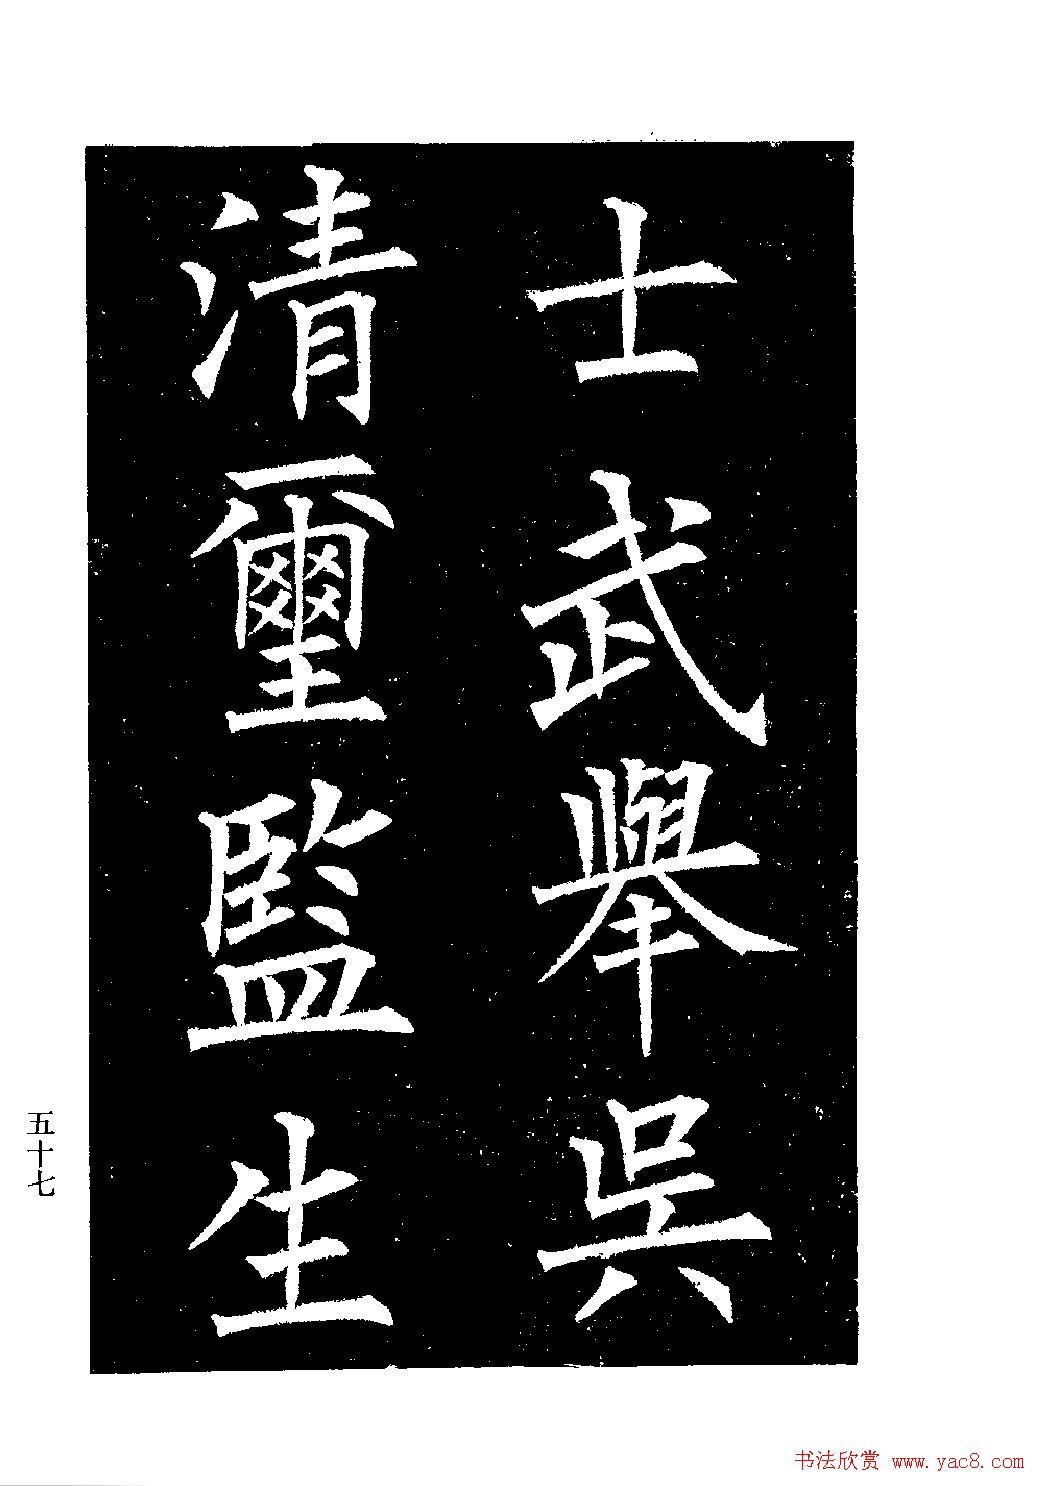 士武舉吳
清璽監生
五十七
书法欣赏 www.yac8.com